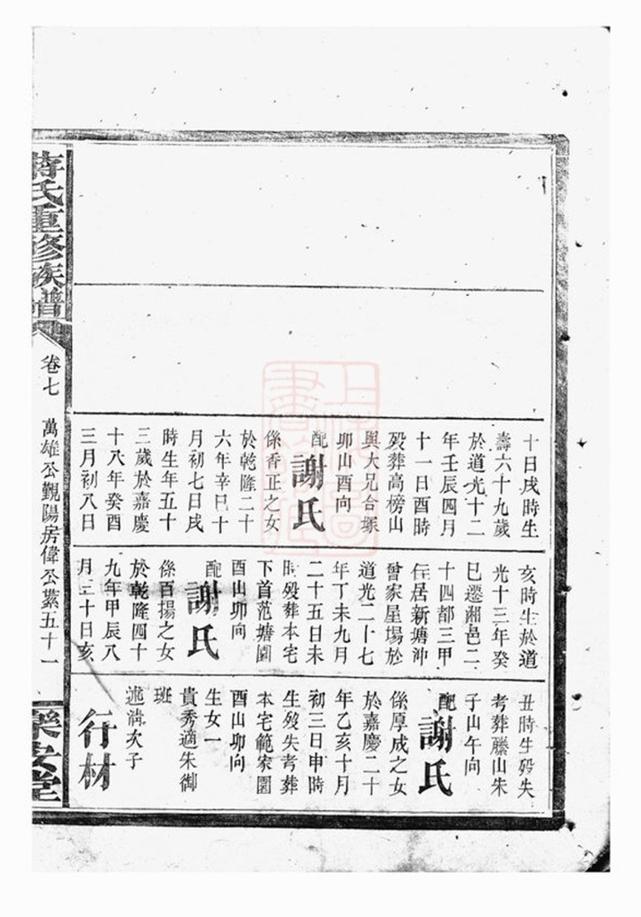 十日戌時生
壽六十九歲
於道光十二
年壬辰四月
十一日酉時
歿葬高榜山
與大兄合塚
卯山酉向
配謝氏
係香正之女
於乾隆二十
六年辛巳十
月初七日戌
時生年五十
三歲於嘉慶
十八年癸酉
三月初八日
亥時生於道
光十三年癸
巳遷湘邑二
十四都三甲
住居新塘沖
曾家屋場於
道光二十七
年丁未九月
二十五日未
時歿葬本宅
下首范塘園
酉山卯向
配謝氏
係百揚之女
於乾隆四十
九年甲辰八
月三十日亥
丑時生歿失
考葬藤山朱
子山午向
配謝氏
係厚成之女
於嘉慶二十
年乙亥十月
初三日申時
生歿失考葬
本宅範家園
酉山卯向
生女一
貴秀適朱御
班
行材
述濤次子
蔣氏重修族譜
卷七
萬雄公覲陽房偉公纍五十一
樂安堂